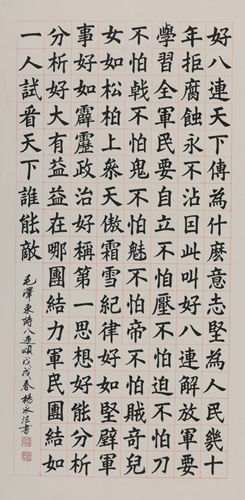 好八連天下傳為什麽意志堅為人民幾十
年拒腐蝕永不沾因此叫好八連解放軍要
學習全軍民要自立不怕壓不怕迫不怕刀
不怕戟不怕鬼不怕魅不怕帝不怕賊奇兒
女如松柏上叅天傲霜雪紀律好如堅壁軍
事好如霹靂政治好稱第一思想好能分析
分析好大有益益在哪團結力軍民團結如
一人試看天下誰能敵
毛澤東詩八連頌戊戌春楊永法書